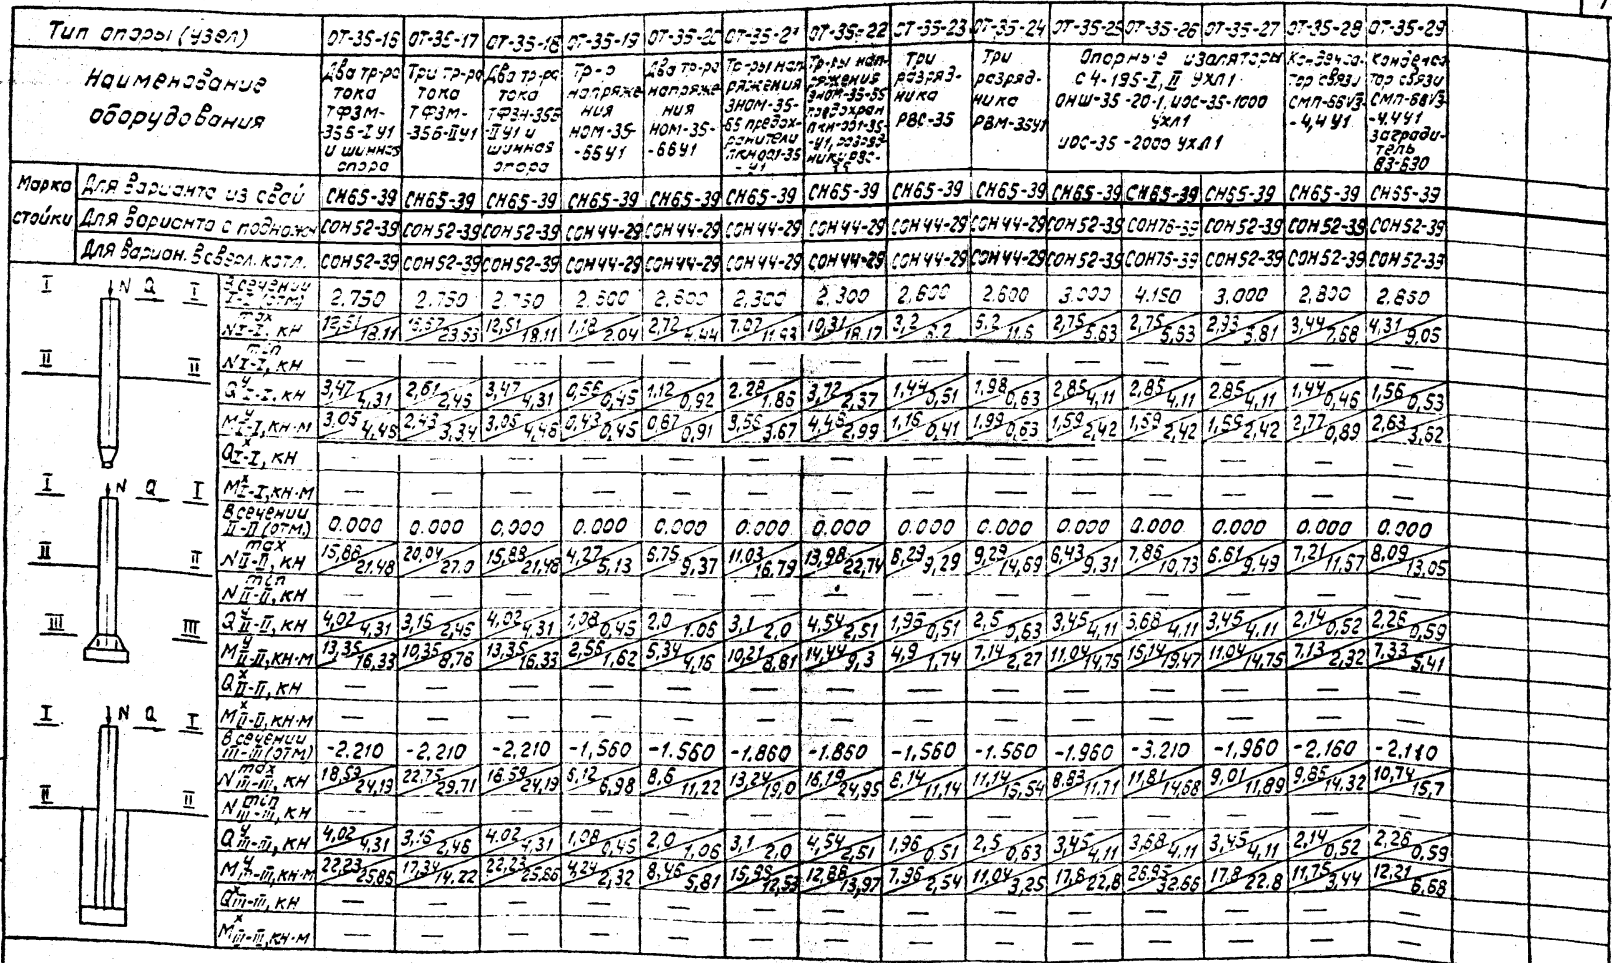 Тип опоры (узел) ОТ-35-16 ОТ-35-17 ОТ-35-18 ОТ-35-19 ОТ-35-20 ОТ-35-21 ОТ-35-22 ОТ-35-23 ОТ-35-24 ОТ-35-25 ОТ-35-26 ОТ-35-27 ОТ-35-28 ОТ-35-29
Наименование оборудования
Два тр-ра тока ТФЗМ-35Б-I У1 и шинная опора
Три тр-ра тока ТФЗМ-35Б-II У1
Два тр-ра тока ТФЗМ-35Б-II У1 и шинная опора
Тр-р напряжения НОМ-35-66У1
Два тр-ра напряжения НОМ-35-66У1
Тр-ры напряжения ЗНОМ-35-65 предохранители ПКН001-35-У1
Тр-ры напряжения ЗНОМ-35-65 предохран ПКН-001-35-У1, разрядники РВС-35
Три разрядника РВС-35
Три разрядника РВМ-35У1
Опорные изоляторы С4-195-I, II УХЛ1 ОНШ-35-20-1, ИОС-35-1000 УХЛ1 ИОС-35-2000 УХЛ1
Конденсатор связи СМП-66/√3-4,4 У1
Конденсатор связи СМП-66/√3-4,4У1 заградитель ВЗ-630
Марка стойки
Для варианта из свай СН65-39 СН65-39 СН65-39 СН65-39 СН65-39 СН65-39 СН65-39 СН65-39 СН65-39 СН65-39 СН65-39 СН65-39 СН65-39 СН65-39
Для варианта с поднож СОН52-39 СОН52-39 СОН52-39 СОН44-29 СОН44-29 СОН44-29 СОН44-29 СОН44-29 СОН44-29 СОН52-39 СОН76-39 СОН52-39 СОН52-39 СОН52-39
Для вариан. в сверл. котл. СОН52-39 СОН52-39 СОН52-39 СОН44-29 СОН44-29 СОН44-29 СОН44-29 СОН44-29 СОН44-29 СОН52-39 СОН76-39 СОН52-39 СОН52-39 СОН52-39
В сечении I-I (отм) 2.750 2.750 2.750 2.600 2.600 2,300 2,300 2,600 2.600 3.000 4.150 3.000 2,800 2,850
N max I-I, кН 12,51/18.11 23.53 12,51/18.11 1,18/2.04 2,72/4.44 7.07 10,31/18.17 3,2/6.2 5,2/11.6 2,75/5.63 2,75/5,53 2,93/5.81 3,44/7,68 4,31/9,05
N min I-I, кН — — — — — — — — — — — — — —
Q у I-I, кН 3,47/4,31 2,61/2,45 3,47/4,31 0,56/0,45 1.12/0,92 2.28/1.86 3,72/2,37 1,44/0,51 1,98/0,63 2,85/4,11 2,85/4,11 2,85/4,11 1,44/0,46 1,56/0,53
M у I-I, кН·м 3.05/4,45 2,43/3,34 3,05/4,46 0,43/0,45 0,67/0,91 3,55/3,67 4,46/2,99 1,16/0,41 1,99/0,63 1,59/2,42 1,59/2,42 1,59/2,42 2,77/0,89 2,63/3,62
Q х I-I, кН — — — — — — — — — — — — — —
M х I-I, кН·м — — — — — — — — — — — — — —
В сечении II-II (отм.) 0.000 0.000 0,000 0.000 0.000 0.000 0.000 0.000 0.000 0.000 0.000 0.000 0.000 0.000
N max II-II, кН 15,88/21.48 20,04/27.0 15,88/21,48 4,27/5,13 6.75/9,37 11.03/16.79 13,98/22,74 6,29/9,29 9,29/14,69 6,43/9,31 7,86/10,73 6.61/9.49 7,21/11,57 8,09/13,05
N min II-II, кН — — — — — — — — — — — — —
Q у II-II, кН 4,02/4,31 3,16/2,46 4,02/4,31 1,08/0,45 2,0/1.06 3,1/2,0 4,54/2,51 1,96/0,51 2,5/0,63 3,45/4,11 3,68/4,11 3,45/4,11 2,14/0,52 2,26/0,59
M у II-II, кН·м 13,35/16,33 10,35/8,76 13,35/16.33 2,56/1,62 5,34/4,16 10,21/8,81 14,44/9,3 4,9/1,74 7,14/2,27 11,04/14,75 15,14/19,47 11,04/14,75 7,13/2,32 7,33/5,41
Q х II-II, кН — — — — — — — — — — — — — —
M х II-II, кН·м — — — — — — — — — — — — — —
В сечении III-III (отм) -2.210 -2.210 -2,210 -1,560 -1.560 -1.860 -1.860 -1,560 -1.560 -1.960 -3.210 -1,960 -2,160 -2,110
N max III-III, кН 18,59/24,19 22,75/29.71 18,59/24,19 6,12/6,98 8,6/11,22 13,24/19,0 16,19/24,95 8,14/11,14 11,14/16,54 8,83/11,71 11,81/14,68 9,01/11,89 9,85/14.32 10,74/15,7
N min III-III, кН — — — — — — — — — — — — — —
Q у III-III, кН 4,02/4,31 3,16/2,46 4.02/4,31 1,08/0,45 2.0/1,06 3,1/2,0 4,54/2,51 1,96/0,51 2,5/0,63 3,45/4,11 3,68/4,11 3,45/4,11 2,14/0,52 2,26/0,59
M у III-III, кН·м 22,23/25,86 17,34/14,22 22,23/25,86 4,24/2,32 8,46/5,81 15,99/12,53 12,88/13,97 7,96/2,54 11,04/3,25 17,8/22,8 26,95/32,66 17,8/22.8 11,75/3,44 12,21/6,68
Q х III-III, кН — — — — — — — — — — — — — —
M х III-III, кН·м — — — — — — — — — — — — — —
I N Q I
II II
I N Q I
II II
III III
I N Q I
II II